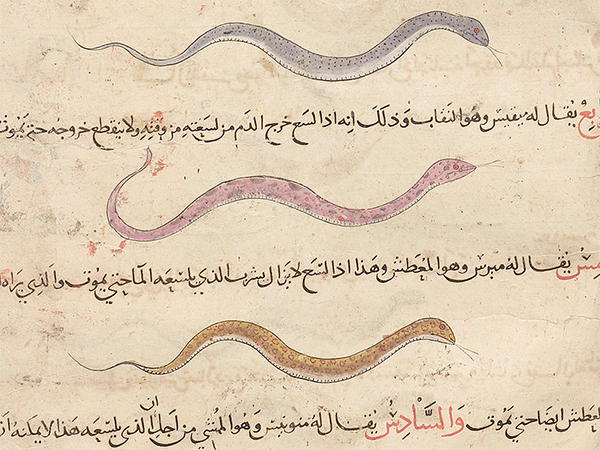 يقال له يقيس وهو النقاب وذلك انه اذا لسع خرج الدم من لسعته من وقته ولا ينقطع خروجه حتى يموت
يقال له مبرس وهو المعطش وهذا اذا لسع لا يزال يشرب الذي يلسعه الماحتي يموت والذي يراه
العطش ايضا حتي يموت والسادس يقال له منوتيس وهو الممشي من اجل ان الذي يلسعه هذا لا يمكنه ان